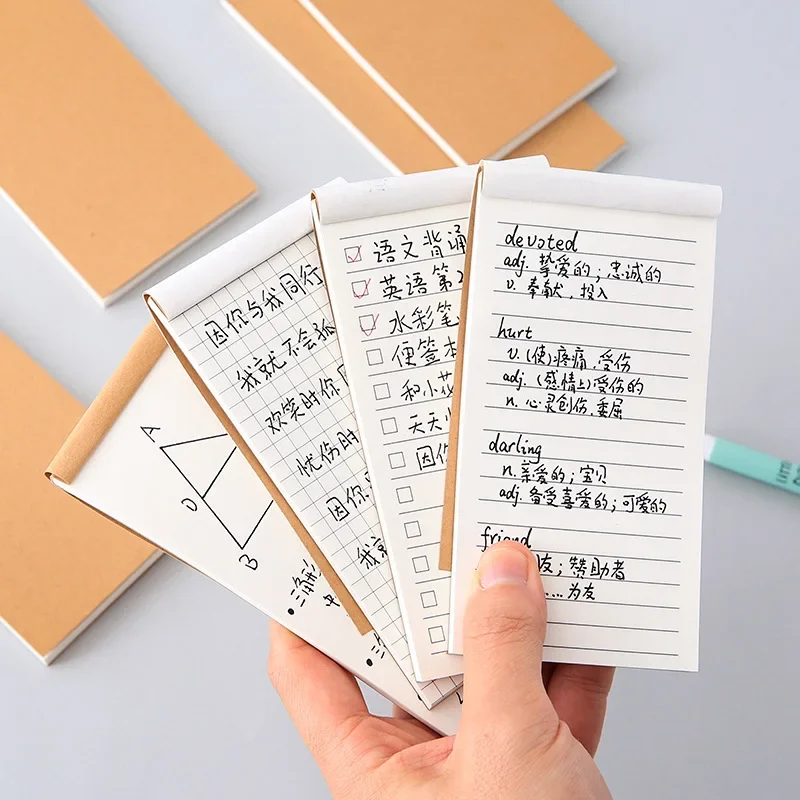 A
D
B
因你与我同行
我就不会孤
欢笑时你
忧伤时
因你
我就
语文背诵
英语第2
水彩笔
便签本
和小花
天天
因你
devoted
adj. 挚爱的；忠诚的
v. 奉献，投入
hurt
v. (使)疼痛，受伤
adj. (感情上)受伤的
n. 心灵创伤，委屈
darling
n. 亲爱的；宝贝
adj. 备受喜爱的；可爱的
friend
友；赞助者
...为友